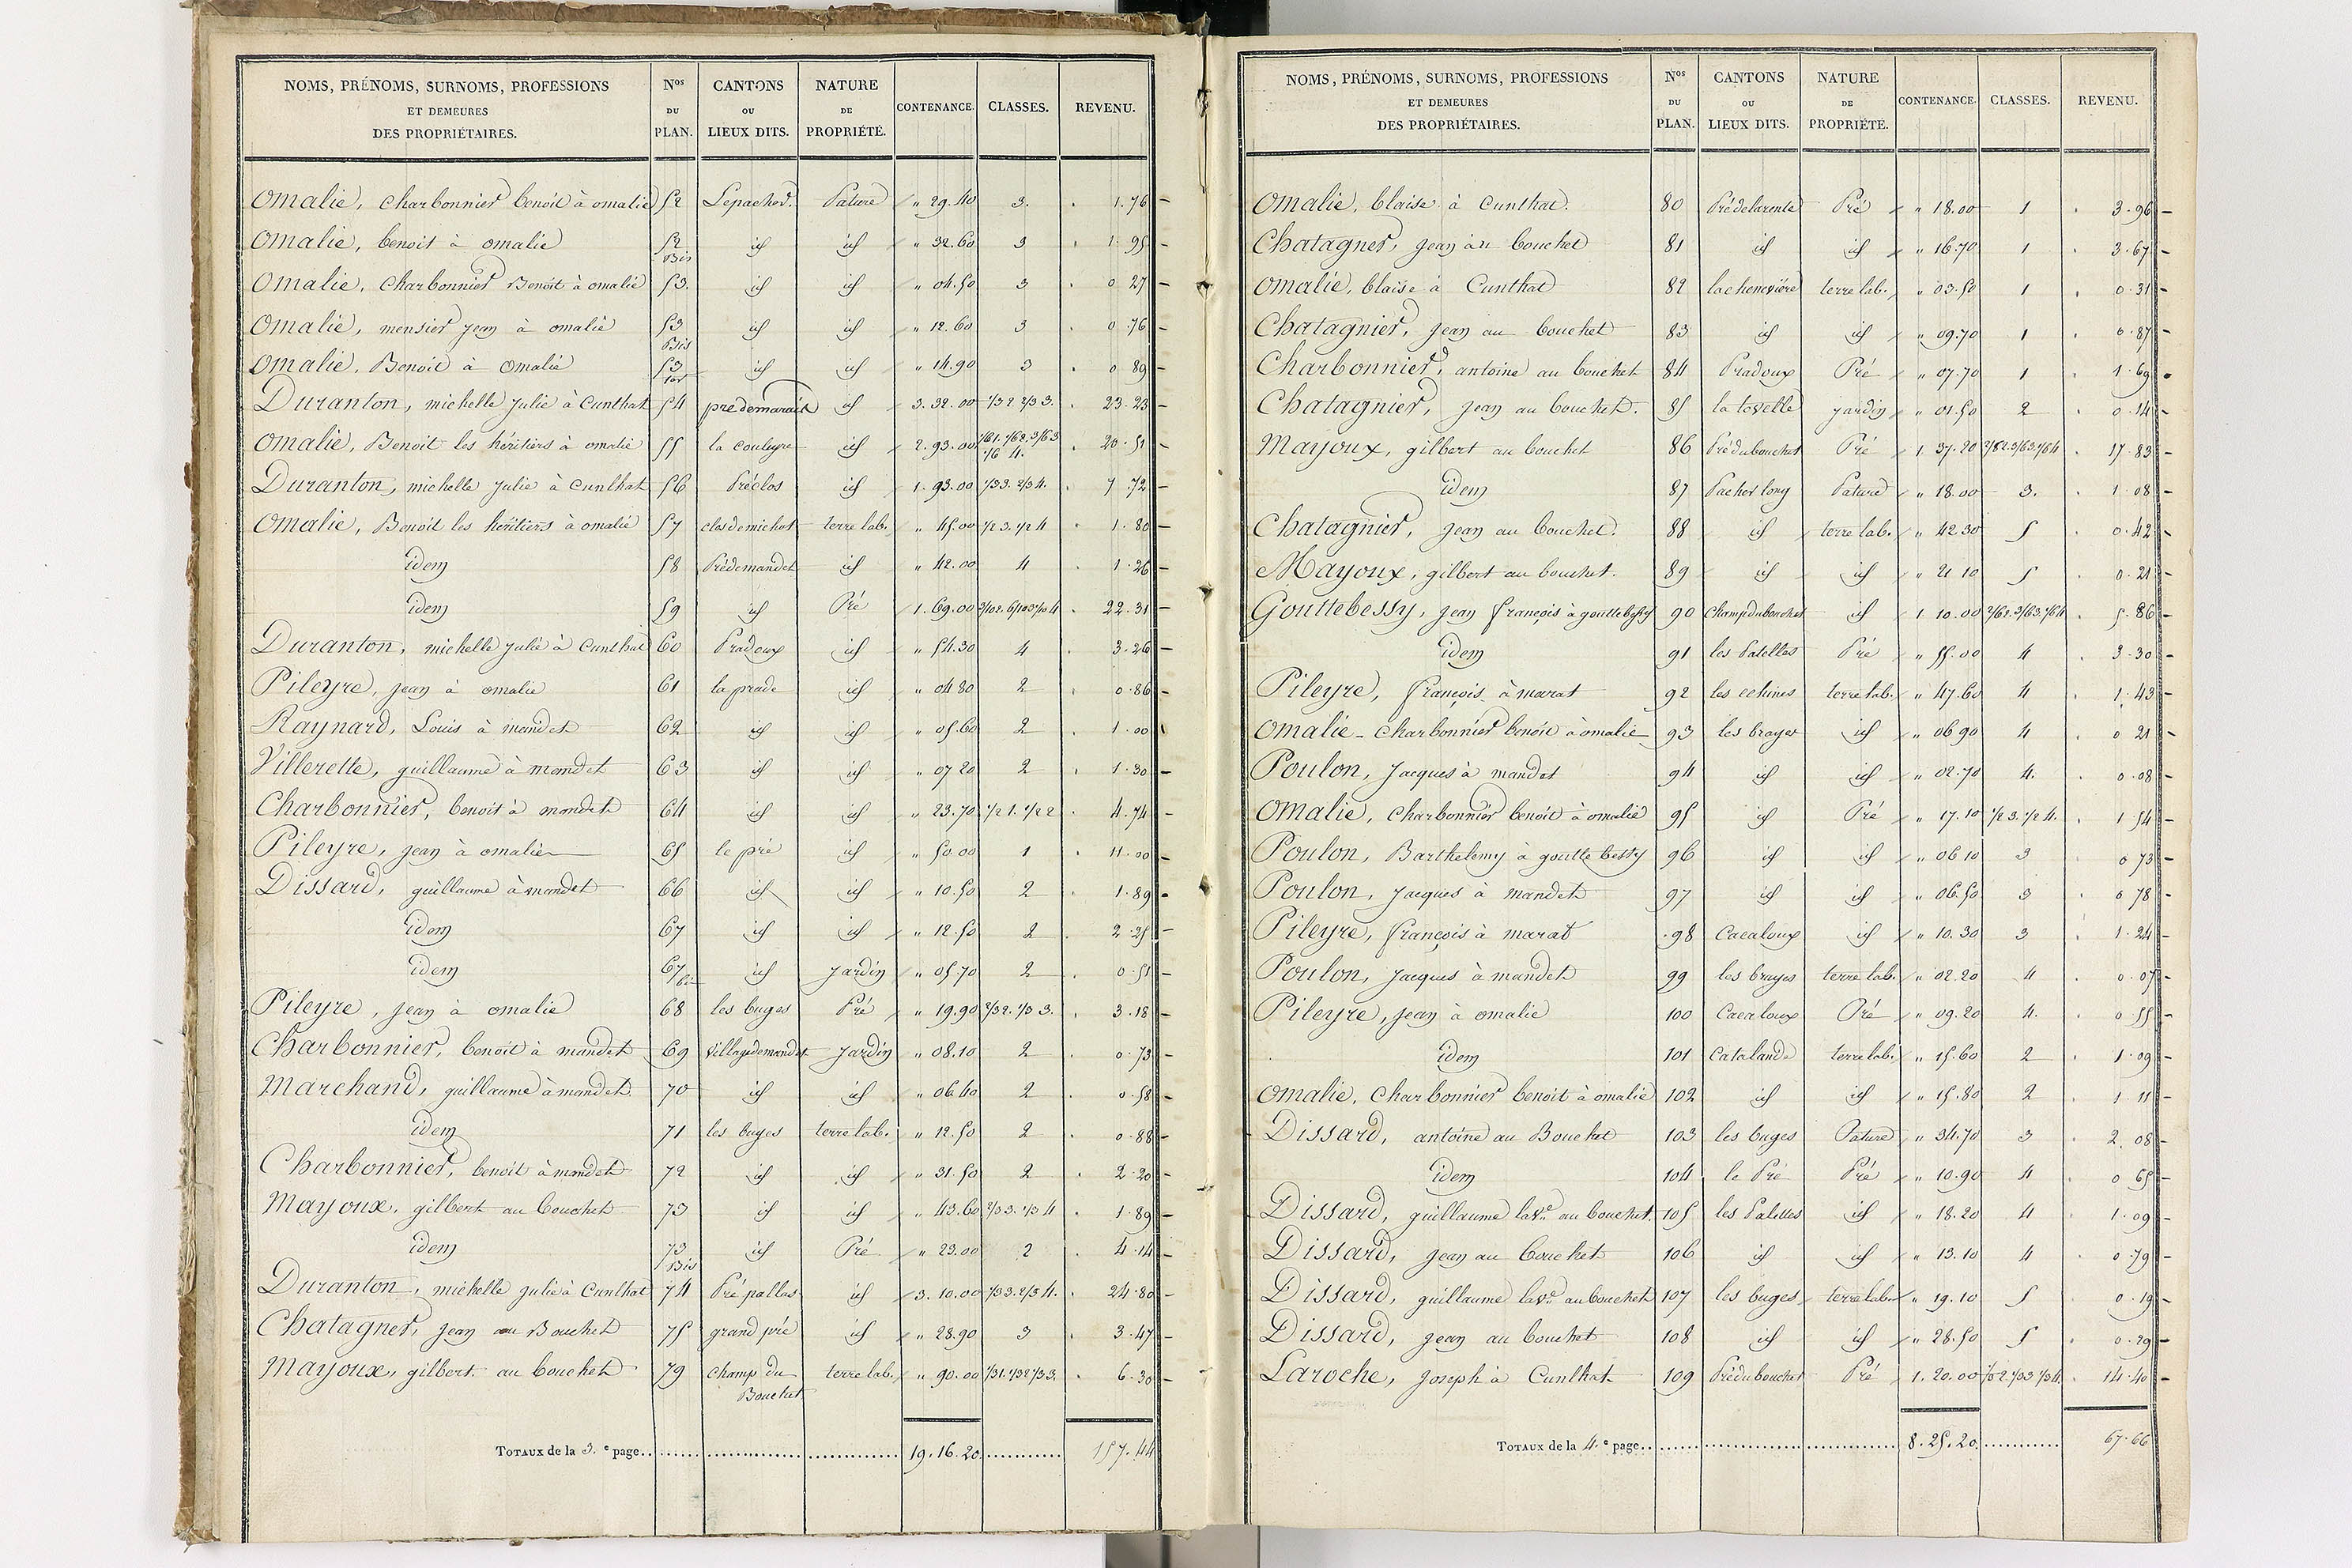 NOMS, PRÉNOMS, SURNOMS, PROFESSIONS ET DEMEURES DES PROPRIÉTAIRES. Nos DU PLAN. CANTONS OU LIEUX DITS. NATURE DE PROPRIÉTÉ. CONTENANCE. CLASSES. REVENU.
Omalie, charbonnier benoit à omalie 52 Lepacher. Pature " 29.40 3. 1.76
Omalie, benoit à omalie 52 Bis id id " 32.60 3 1.95
Omalie, Charbonnier Benoit à omalie 53. id id " 04.50 3 0.27
Omalie, mensier jean à omalie 53 Bis id id " 12.60 3 0.76
Omalie, Benoit à Omalie 53 ter id id " 14.90 3 0.89
Duranton, michelle Julie à Cunlhat 54 pré demarait id 3.32.00 1/3 2 2/3 3. 23.23
Omalie, Benoit les héritiers à omalie 55 la couleyre id 2.93.00 1/6 1. 1/6 2. 3/6 3 1/6 4. 20.51
Duranton, michelle Julie à Cunlhat 56 Préclos id 1.93.00 1/3 3. 2/3 4. 7.72
Omalie, Benoit les héritiers à omalié 57 clos de michot terre lab. " 45.00 1/2 3. 1/2 4 1.80
idem 58 Prédemandet id " 42.00 4 1.26
idem 59 id Pré 1.69.00 3/10 2. 6/10 3 1/10 4 22.31
Duranton, michelle Julie à Cunlhat 60 Pradoux id " 54.30 4 3.26
Pileyre, jean à omalie 61 la prade id " 04.80 2 0.86
Raynard, Louis à mandet 62 id id " 05.60 2 1.00
Villerette, guillaume à mandet 63 id id " 07.20 2 1.30
Charbonnier, benoit à mandet 64 id id " 23.70 1/2 1. 1/2 2 4.74
Pileyre, jean à omalie 65 le pré id " 50.00 1 11.00
Dissard, guillaume à mandet 66 id id " 10.50 2 1.89
idem 67 id id " 12.50 2 2.25
idem 67 bis id jardin " 05.70 2 0.51
Pileyre, jean à omalie 68 les buges Pré " 19.90 2/3 2. 1/3 3. 3.18
Charbonnier, benoit à mandet 69 villagedemandet jardin " 08.10 2 0.73
Marchand, guillaume à mandet 70 id id " 06.40 2 0.58
idem 71 les buges terre lab. " 12.50 2 0.88
Charbonnier, benoit à mandet 72 id id " 31.50 2 2.20
Mayoux, gilbert au bouchet 73 id id " 43.60 2/3 3. 1/3 4 1.89
idem 73 Bis id Pré " 23.00 2 4.14
Duranton, michelle julie à Cunlhat 74 Pré pallas id 3.10.00 1/3 3. 2/3 4. 24.80
Chatagner, jean au Bouchet 75 grand pré id " 28.90 3 3.47
Mayoux, gilbert au bouchet 79 champ du Bouchet terre lab. " 90.00 1/3 1. 1/3 2 1/3 3. 6.30
TOTAUX de la 3.e page 19.16.20 157.44
NOMS, PRÉNOMS, SURNOMS, PROFESSIONS ET DEMEURES DES PROPRIÉTAIRES. Nos DU PLAN. CANTONS OU LIEUX DITS. NATURE DE PROPRIÉTÉ. CONTENANCE. CLASSES. REVENU.
Omalie, blaise à Cunlhat. 80 Prédelarente Pré " 18.00 1 3.96
Chatagner, jean au bouchet 81 id id " 16.70 1 3.67
Omalie, blaise à Cunlhat 82 la chenevière terre lab. " 03.50 1 0.31
Chatagnier, jean au bouchet 83 id id " 09.70 1 0.87
Charbonnier, antoine au bouchet 84 Pradoux Pré " 07.70 1 1.69
Chatagnier, jean au bouchet. 85 la tovelle jardin " 01.50 2 0.14
Mayoux, gilbert au bouchet 86 Prédubouchet Pré 1 37.20 17.83
idem 87 Pacher long Pature " 18.00 3. 1.08
Chatagnier, jean au bouchet. 88 id terre lab. " 42.30 5 0.42
Mayoux, gilbert au bouchet. 89 id id " 21 10 5 0.21
Gouttebessy, jean françois à gouttebessy 90 champdubouchet id 1 10.00 2/6 2. 3/6 3. 1/6 4 5.86
idem 91 les Patelles Pré " 55.00 4 3.30
Pileyre, françois à marat 92 les echines terre lab. " 47.60 4 1.43
Omalie - Charbonnier benoit à omalie 93 les brayes id " 06 90 4 0 21
Poulon, Jacques à mandet 94 id id " 02.70 4. 0.08
Omalie, Charbonnier benoit à omalie 95 id Pré " 17.10 1/2 3. 1/2 4. 1 54
Poulon, Barthelemy à goutte bessy 96 id id " 06 10 3 0 73
Poulon, Jacques à mandet 97 id id " 06.50 3 0 78
Pileyre, françois à marat 98 Cacaloux id " 10.30 3 1.24
Poulon, Jacques à mandet 99 les brayes terre lab. " 02.20 4 0.07
Pileyre, jean à omalie 100 Cacaloux Pré " 09.20 4. 0 55
idem 101 Catalande terre lab. " 15.60 2 1.09
Omalie, Charbonnier benoit à omalie 102 id id " 15.80 2 1 11
Dissard, antoine au Bouchet 103 les buges Pature " 34.70 3 2.08
idem 104 le Pré Pré " 10.90 4 0 65
Dissard, guillaume la ve au bouchet. 105 les Palettes id " 18.20 4 1.09
Dissard, jean au bouchet 106 id id " 13.10 4 0.79
Dissard, guillaume la ve au bouchet 107 les buges terre lab. " 19.10 5 0.19
Dissard, jean au bouchet 108 id id " 28.50 5 0.29
Laroche, Joseph à Cunlhat 109 Prédubouchet Pré 1.20.00 1/3 2. 1/3 3 1/3 4. 14.40
TOTAUX de la 4.e page 8.25.20. 67.66